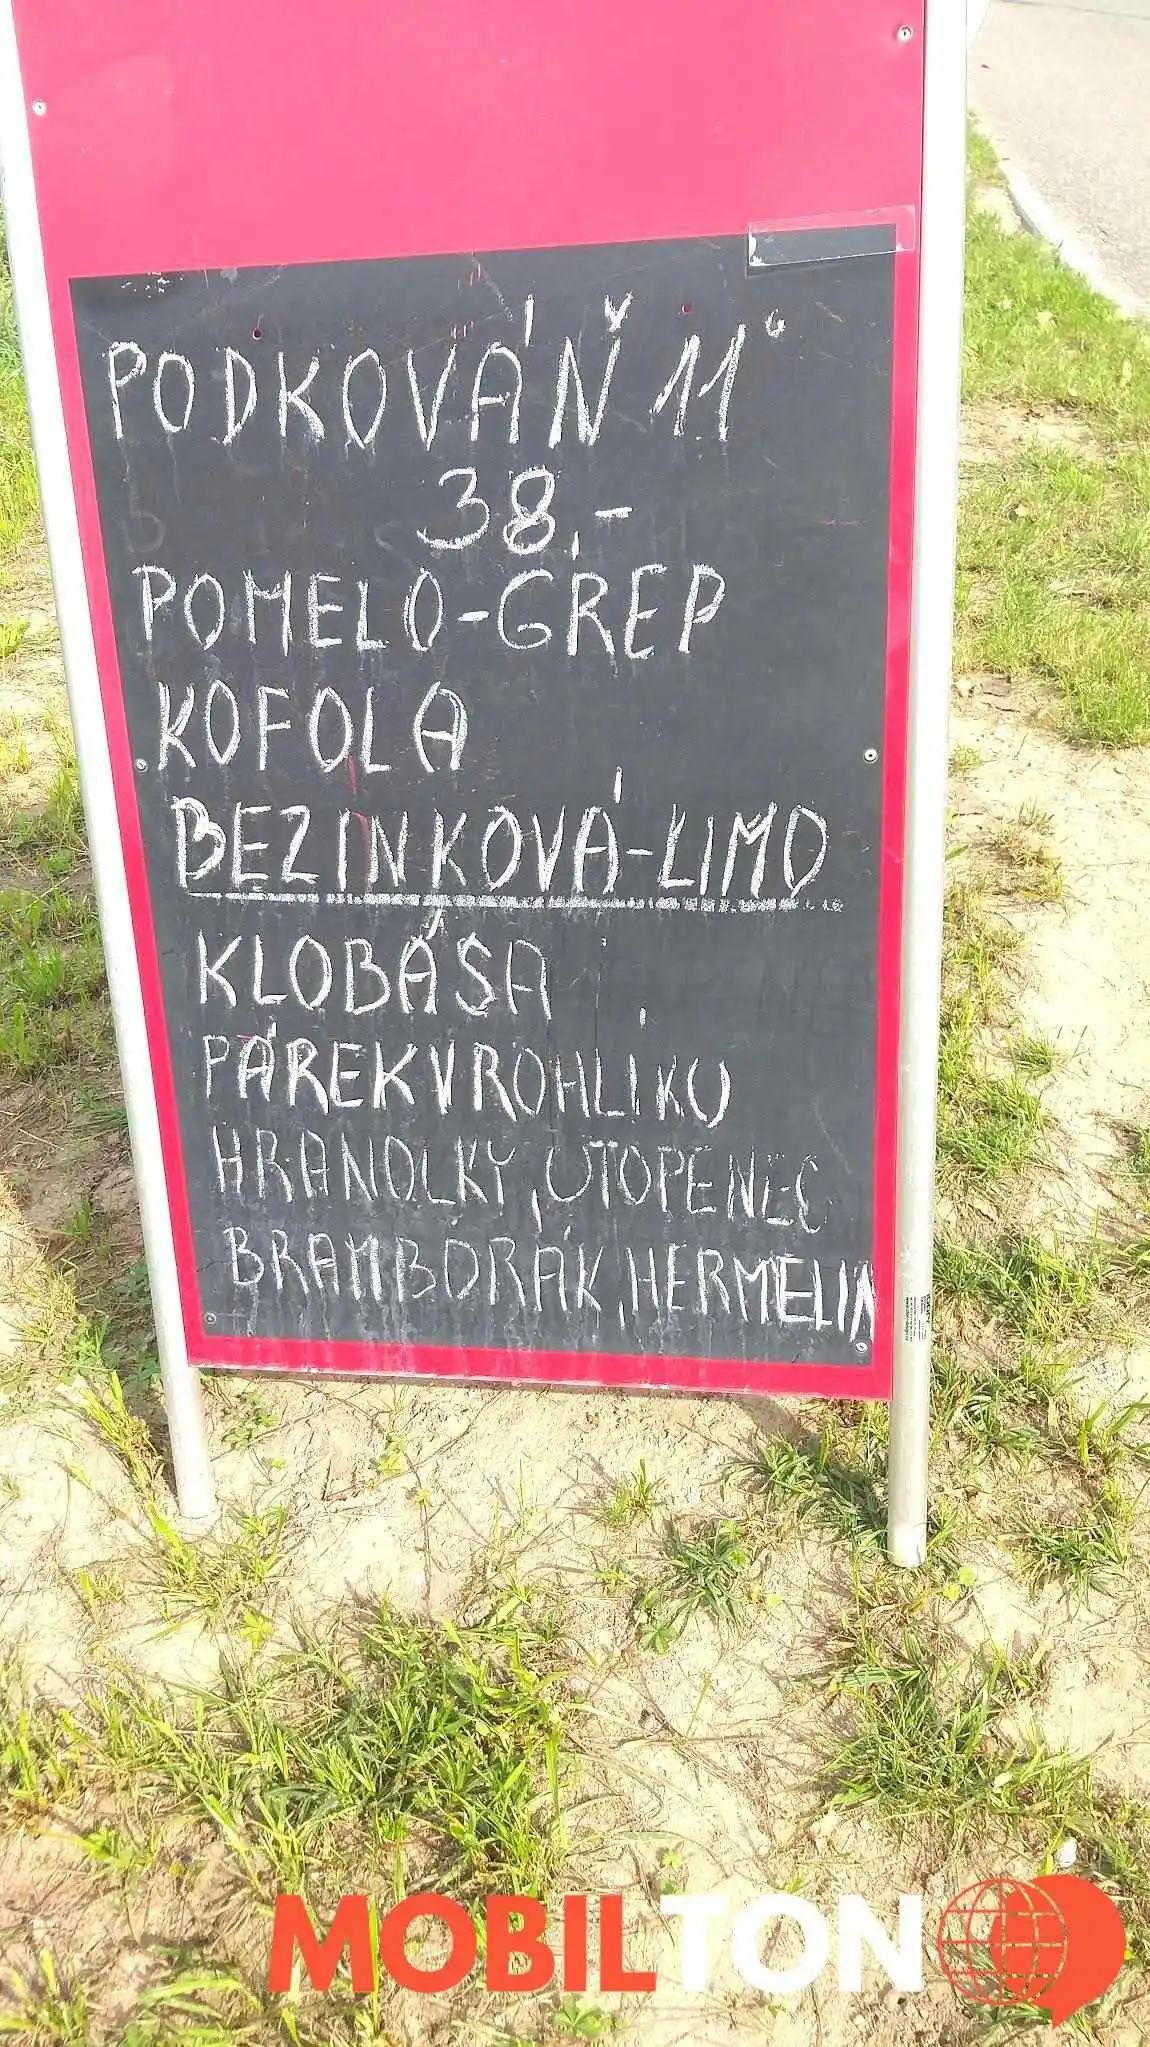 PODKOVÁŇ 11°
38,-
POMELO-GREP
KOFOLA
BEZINKOVÁ-LIMO
KLOBÁSA
PÁREK V ROHLÍKU
HRANOLKY, UTOPENEC
BRAMBORÁK, HERMELIN
MOBIL TON